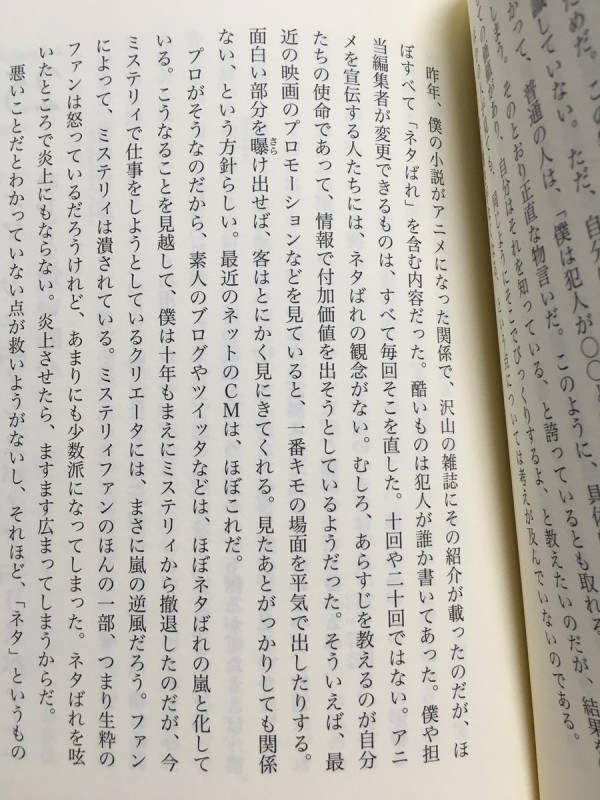 ためだ。この
識していない。ただ、自分
がって、普通の人は、「僕は犯人が〇〇
しまう。そのとおり正直な物言いだ。このように、具体
自分はそれを知っている、と誇っているとも取れる。
ようにそこでびっくりするよ、と教えたいのだが、結果を
という点については考えが及んでいないのである。
昨年、僕の小説がアニメになった関係で、沢山の雑誌にその紹介が載ったのだが、ほ
ぼすべて「ネタばれ」を含む内容だった。酷いものは犯人が誰か書いてあった。僕や担
当編集者が変更できるものは、すべて毎回そこを直した。十回や二十回ではない。アニ
メを宣伝する人たちには、ネタばれの観念がない。むしろ、あらすじを教えるのが自分
たちの使命であって、情報で付加価値を出そうとしているようだった。そういえば、最
近の映画のプロモーションなどを見ていると、一番キモの場面を平気で出したりする。
面白い部分を曝け出せば、客はとにかく見にきてくれる。見たあとがっかりしても関係
さら
ない、という方針らしい。最近のネットのCMは、ほぼこれだ。
プロがそうなのだから、素人のブログやツイッタなどは、ほぼネタばれの嵐と化して
いる。こうなることを見越して、僕は十年もまえにミステリィから撤退したのだが、今
ミステリィで仕事をしようとしているクリエータには、まさに嵐の逆風だろう。ファン
によって、ミステリィは潰されている。ミステリィファンのほんの一部、つまり生粋の
ファンは怒っているだろうけれど、あまりにも少数派になってしまった。ネタばれを呟
いたところで炎上にもならない。炎上させたら、ますます広まってしまうからだ。
悪いことだとわかっていない点が救いようがないし、それほど、「ネタ」というもの